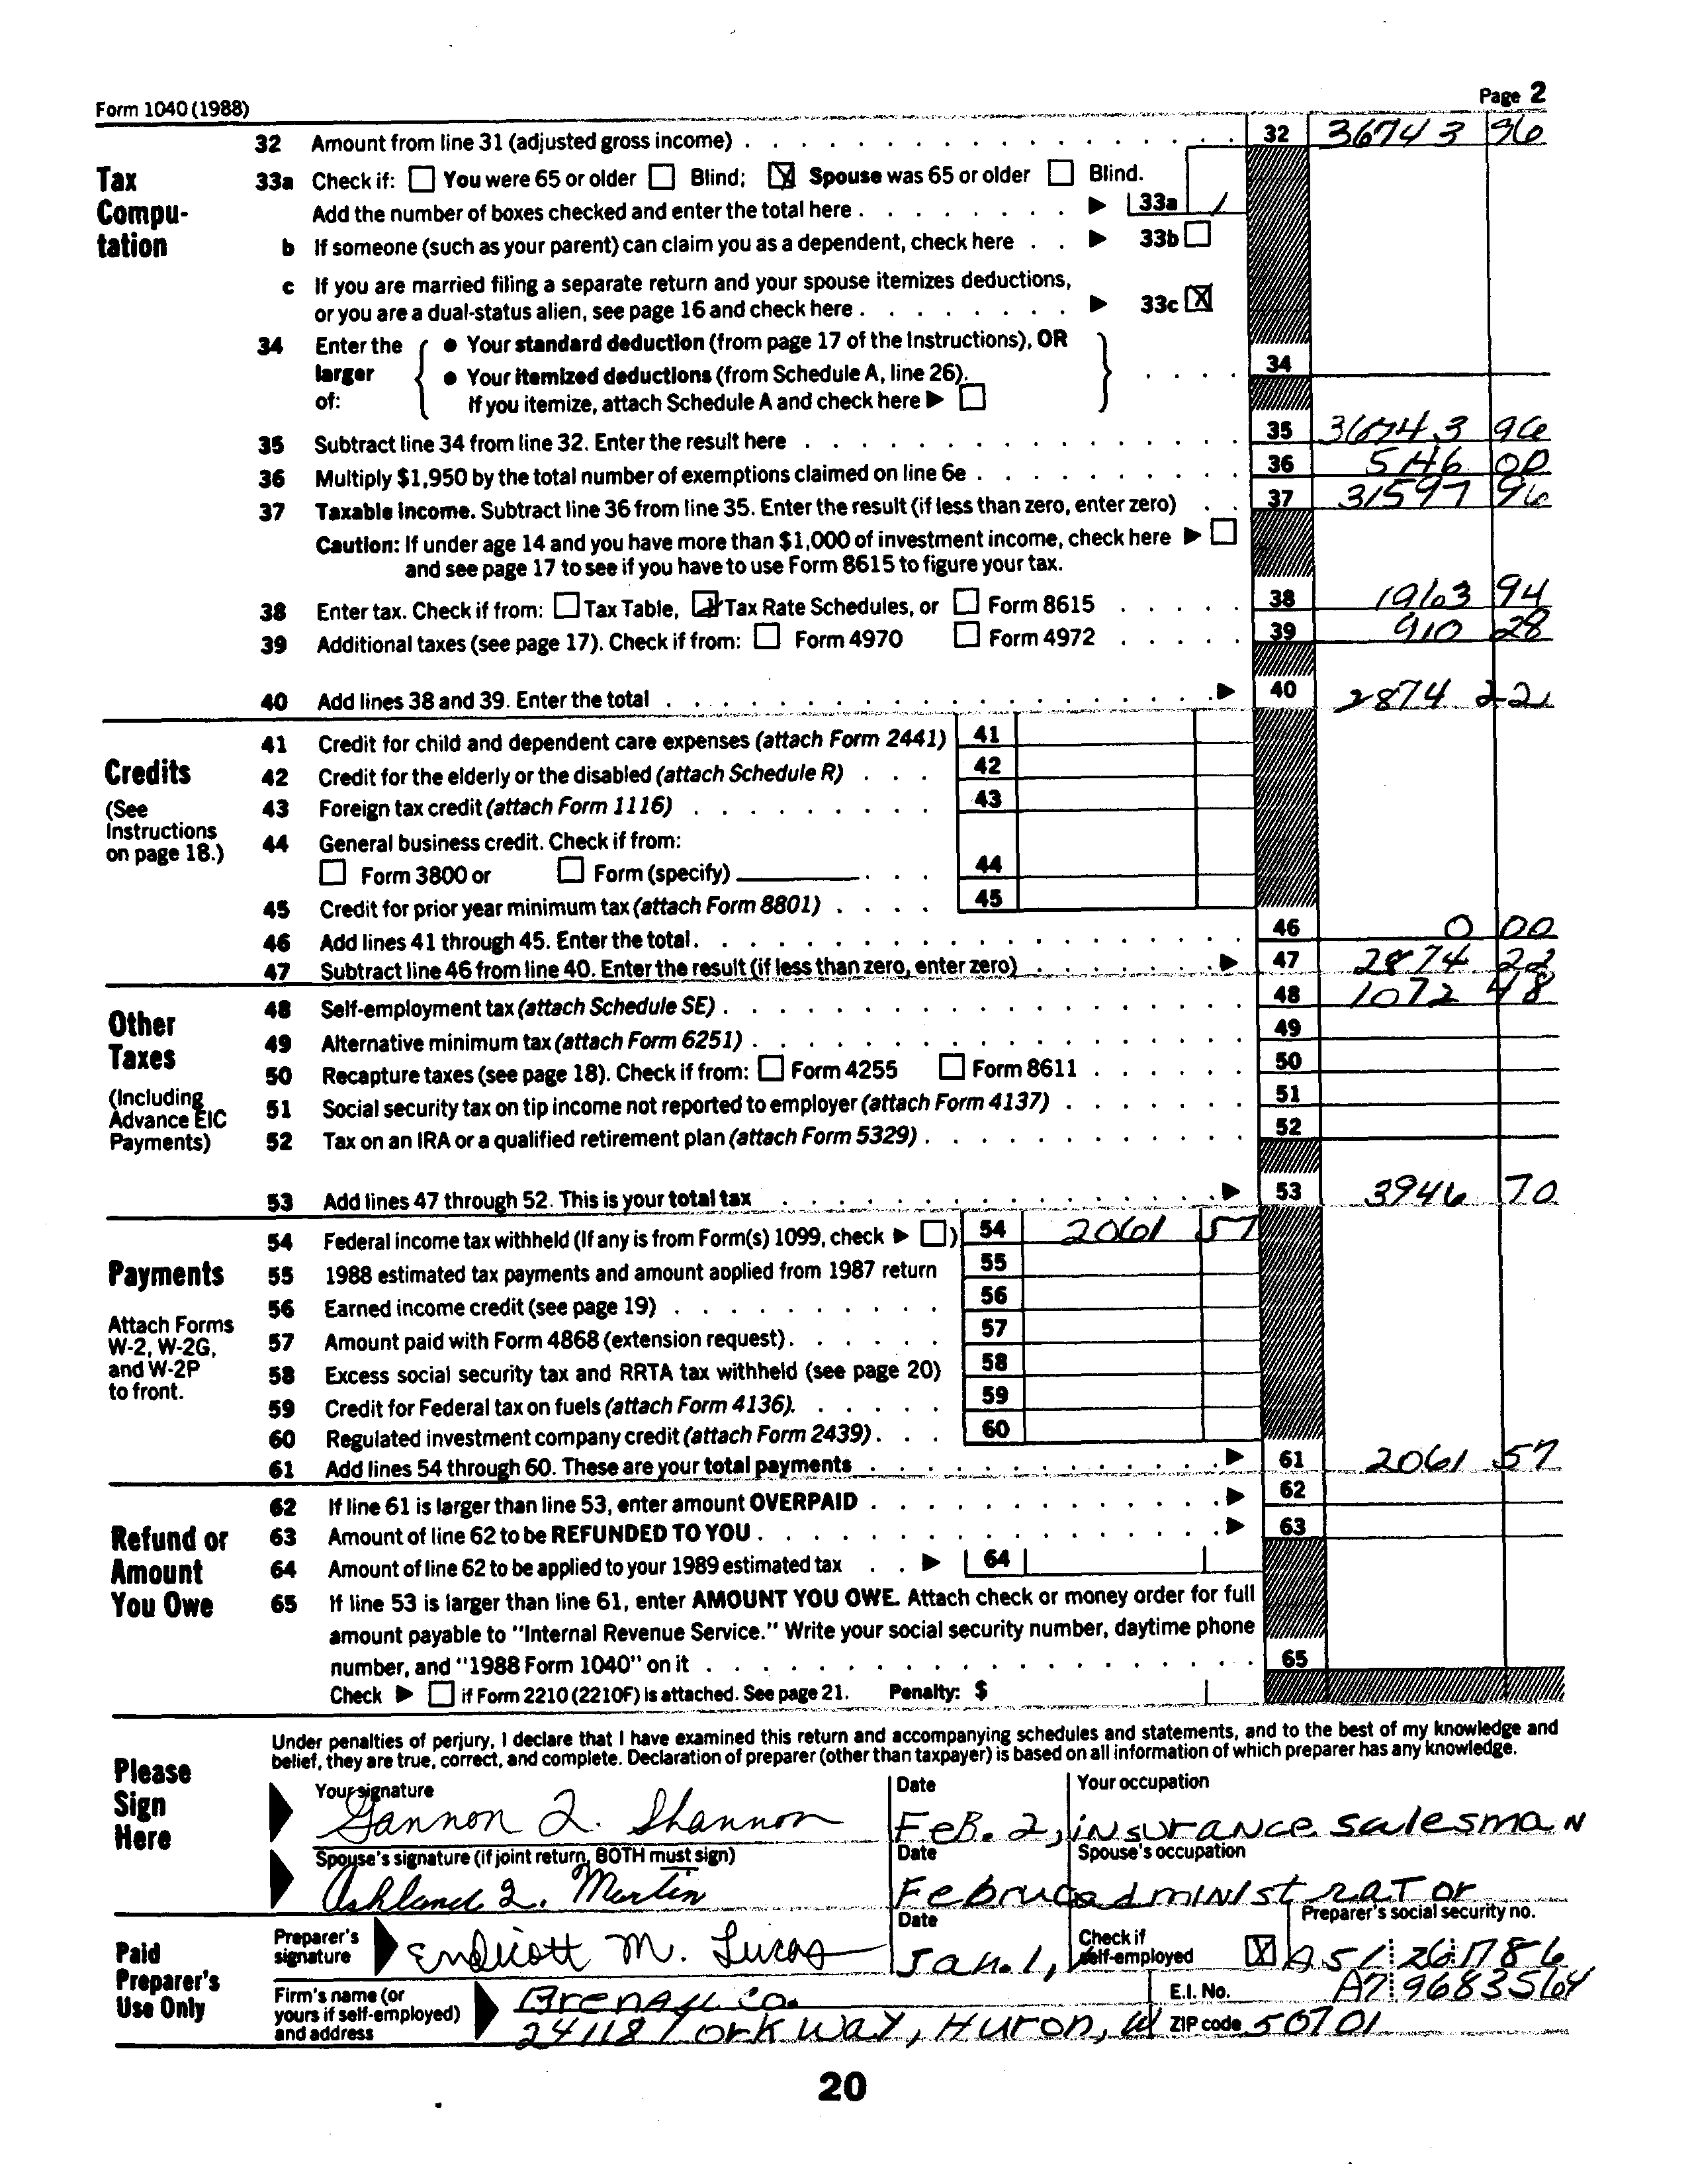 Form 1040 (1988)
Page 2
32 Amount from line 31 (adjusted gross income) 32 36743 96
Tax Compu-tation
33a Check if: You were 65 or older Blind; X Spouse was 65 or older Blind.
Add the number of boxes checked and enter the total here 33a 1
b If someone (such as your parent) can claim you as a dependent, check here 33b
c If you are married filing a separate return and your spouse itemizes deductions,
or you are a dual-status alien, see page 16 and check here 33c X
34 Enter the larger of:
• Your standard deduction (from page 17 of the Instructions), OR
• Your itemized deductions (from Schedule A, line 26).
If you itemize, attach Schedule A and check here
34
35 Subtract line 34 from line 32. Enter the result here 35 36743 96
36 Multiply $1,950 by the total number of exemptions claimed on line 6e 36 5146 00
37 Taxable income. Subtract line 36 from line 35. Enter the result (if less than zero, enter zero) 37 31597 96
Caution: If under age 14 and you have more than $1,000 of investment income, check here
and see page 17 to see if you have to use Form 8615 to figure your tax.
38 Enter tax. Check if from: Tax Table, Tax Rate Schedules, or Form 8615 38 1963 94
39 Additional taxes (see page 17). Check if from: Form 4970 Form 4972 39 910 28
40 Add lines 38 and 39. Enter the total 40 2874 22
Credits
(See Instructions on page 18.)
41 Credit for child and dependent care expenses (attach Form 2441) 41
42 Credit for the elderly or the disabled (attach Schedule R) 42
43 Foreign tax credit (attach Form 1116) 43
44 General business credit. Check if from:
Form 3800 or Form (specify) 44
45 Credit for prior year minimum tax (attach Form 8801) 45
46 Add lines 41 through 45. Enter the total 46 0 00
47 Subtract line 46 from line 40. Enter the result (if less than zero, enter zero) 47 2874 22
Other Taxes
(Including Advance EIC Payments)
48 Self-employment tax (attach Schedule SE) 48 1072 48
49 Alternative minimum tax (attach Form 6251) 49
50 Recapture taxes (see page 18). Check if from: Form 4255 Form 8611 50
51 Social security tax on tip income not reported to employer (attach Form 4137) 51
52 Tax on an IRA or a qualified retirement plan (attach Form 5329) 52
53 Add lines 47 through 52. This is your total tax 53 3946 70
Payments
Attach Forms W-2, W-2G, and W-2P to front.
54 Federal income tax withheld (If any is from Form(s) 1099, check ) 54 2061 57
55 1988 estimated tax payments and amount applied from 1987 return 55
56 Earned income credit (see page 19) 56
57 Amount paid with Form 4868 (extension request) 57
58 Excess social security tax and RRTA tax withheld (see page 20) 58
59 Credit for Federal tax on fuels (attach Form 4136) 59
60 Regulated investment company credit (attach Form 2439) 60
61 Add lines 54 through 60. These are your total payments 61 2061 57
Refund or Amount You Owe
62 If line 61 is larger than line 53, enter amount OVERPAID 62
63 Amount of line 62 to be REFUNDED TO YOU 63
64 Amount of line 62 to be applied to your 1989 estimated tax 64
65 If line 53 is larger than line 61, enter AMOUNT YOU OWE. Attach check or money order for full
amount payable to "Internal Revenue Service." Write your social security number, daytime phone
number, and "1988 Form 1040" on it 65
Check if Form 2210 (2210F) is attached. See page 21. Penalty: $
Please Sign Here
Under penalties of perjury, I declare that I have examined this return and accompanying schedules and statements, and to the best of my knowledge and
belief, they are true, correct, and complete. Declaration of preparer (other than taxpayer) is based on all information of which preparer has any knowledge.
Your signature Date Your occupation
Gannon Q. Shannon Feb. 2, insurance salesman
Spouse's signature (if joint return, BOTH must sign) Date Spouse's occupation
Ashland Q. Martin administrator
Paid Preparer's Use Only
Preparer's signature Endicott M. Lucas Date Jan. 1, Check if self-employed X Preparer's social security no. A51 26 1786
Firm's name (or yours if self-employed) and address
Co. E.I. No. A7 9683564
York Way, Huron, ZIP code 50701
20